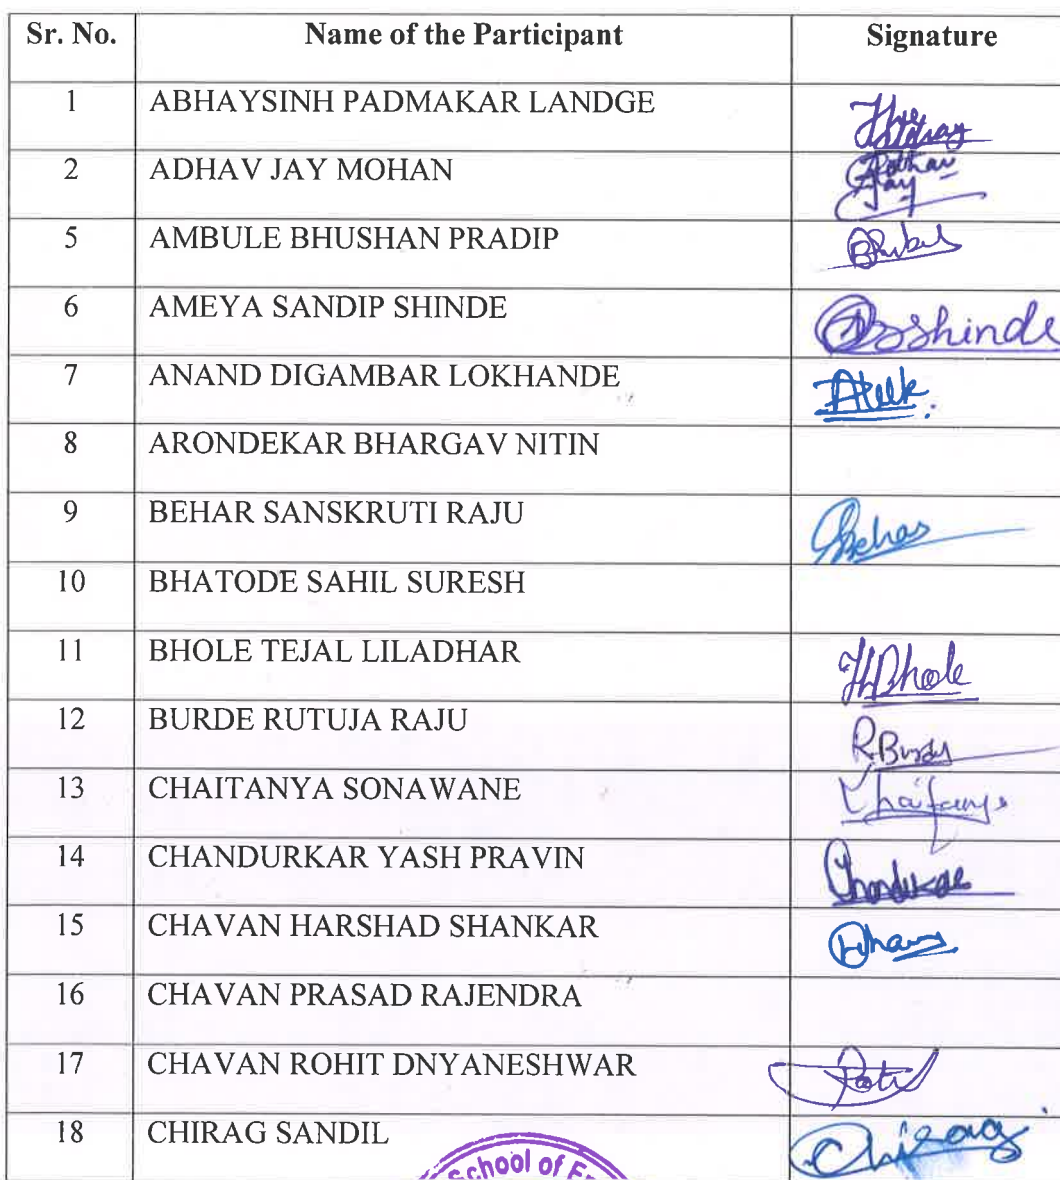 Sr. No. Name of the Participant Signature
1 ABHAYSINH PADMAKAR LANDGE
2 ADHAV JAY MOHAN Adhav
Jay
5 AMBULE BHUSHAN PRADIP
6 AMEYA SANDIP SHINDE Shinde
7 ANAND DIGAMBAR LOKHANDE
8 ARONDEKAR BHARGAV NITIN
9 BEHAR SANSKRUTI RAJU Behar
10 BHATODE SAHIL SURESH
11 BHOLE TEJAL LILADHAR Bhole
12 BURDE RUTUJA RAJU R.Burde
13 CHAITANYA SONAWANE Chaitanya
14 CHANDURKAR YASH PRAVIN Chandurkar
15 CHAVAN HARSHAD SHANKAR
16 CHAVAN PRASAD RAJENDRA
17 CHAVAN ROHIT DNYANESHWAR
18 CHIRAG SANDIL Chirag
School of